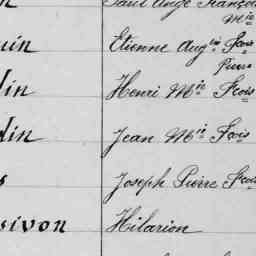 Paul Ange François
Min
uin Etienne Augin Fcois
Pierre
lin Henri Min Fcois
din Jean Min Fcois
s Joseph Pierre Fcois
sivon Hilarion